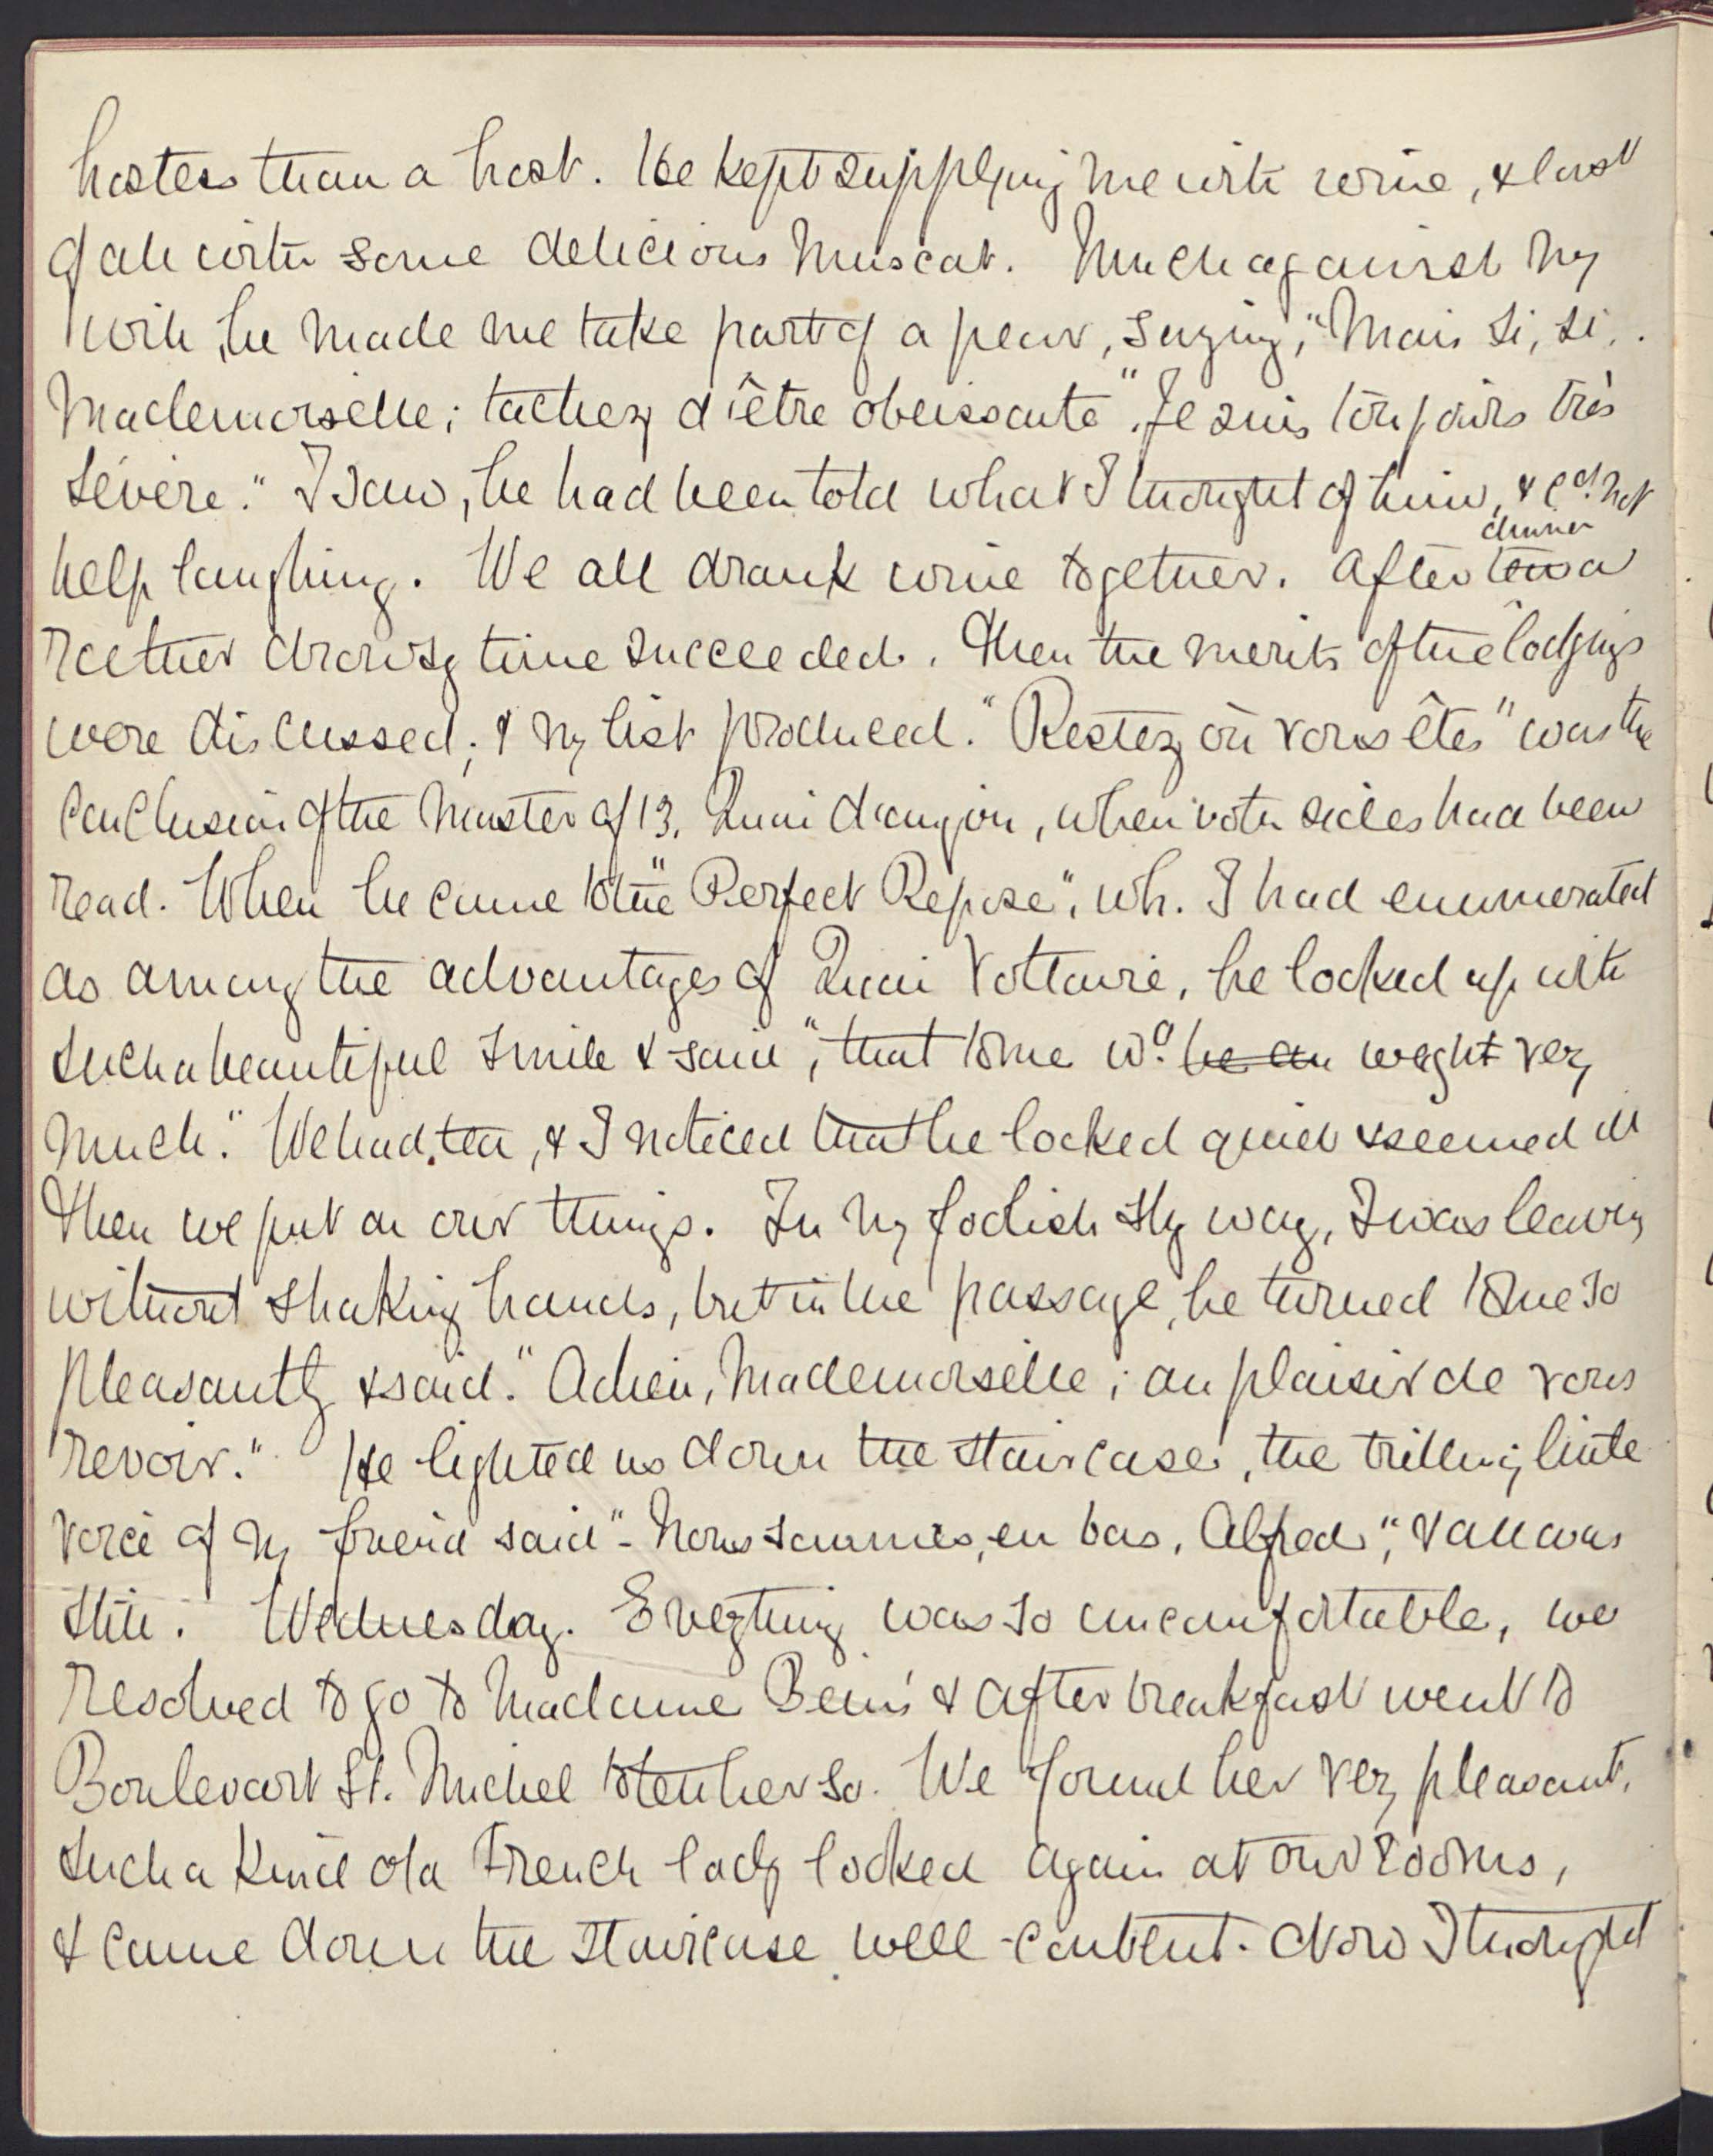 hostess than a host. He kept supplying me with wine, & last
of all with some delicious Muscat. Much against my
will, he made me take part of a pear, saying, "Mais si, si,
Mademoiselle; tachez d'être obeissante". "Je suis toujours très
sévère." I saw, he had been told what I thought of him, & cd. not
help laughing. We all drank wine together. After dinner a
rather drowsy time succeeded. Then the merits of the lodgings
were discussed; & my list produced. "Restez où vous êtes" was the
conclusion of the Master of 13, Quai d'anjou, when both sides had been
read. When he came to the "Perfect Repose", wh. I had enumerated
as among the advantages of Quai Voltaire, he looked up with
such a beautiful smile & said", that to me wd. be an weight very
much." We had tea, & I noticed that he looked quiet & seemed ill
Then we put on our things. In my foolish shy way, I was leaving
without shaking hands, but in the passage, he turned to me so
pleasantly & said. "Adieu, Mademoiselle; au plaisir de vous
revoir." He lighted us down the staircase, the trilling little
voice of my friend said "- Nous sommes, en bas, Alfred", & all was
still. Wednesday. Everything was so uncomfortable, we
resolved to go to Madame Bein's & after breakfast went to
Boulevart St. Michel to tell her so. We found her very pleasant,
such a kind old French lady looked again at our rooms,
& came down the staircase well-content. Now I thought